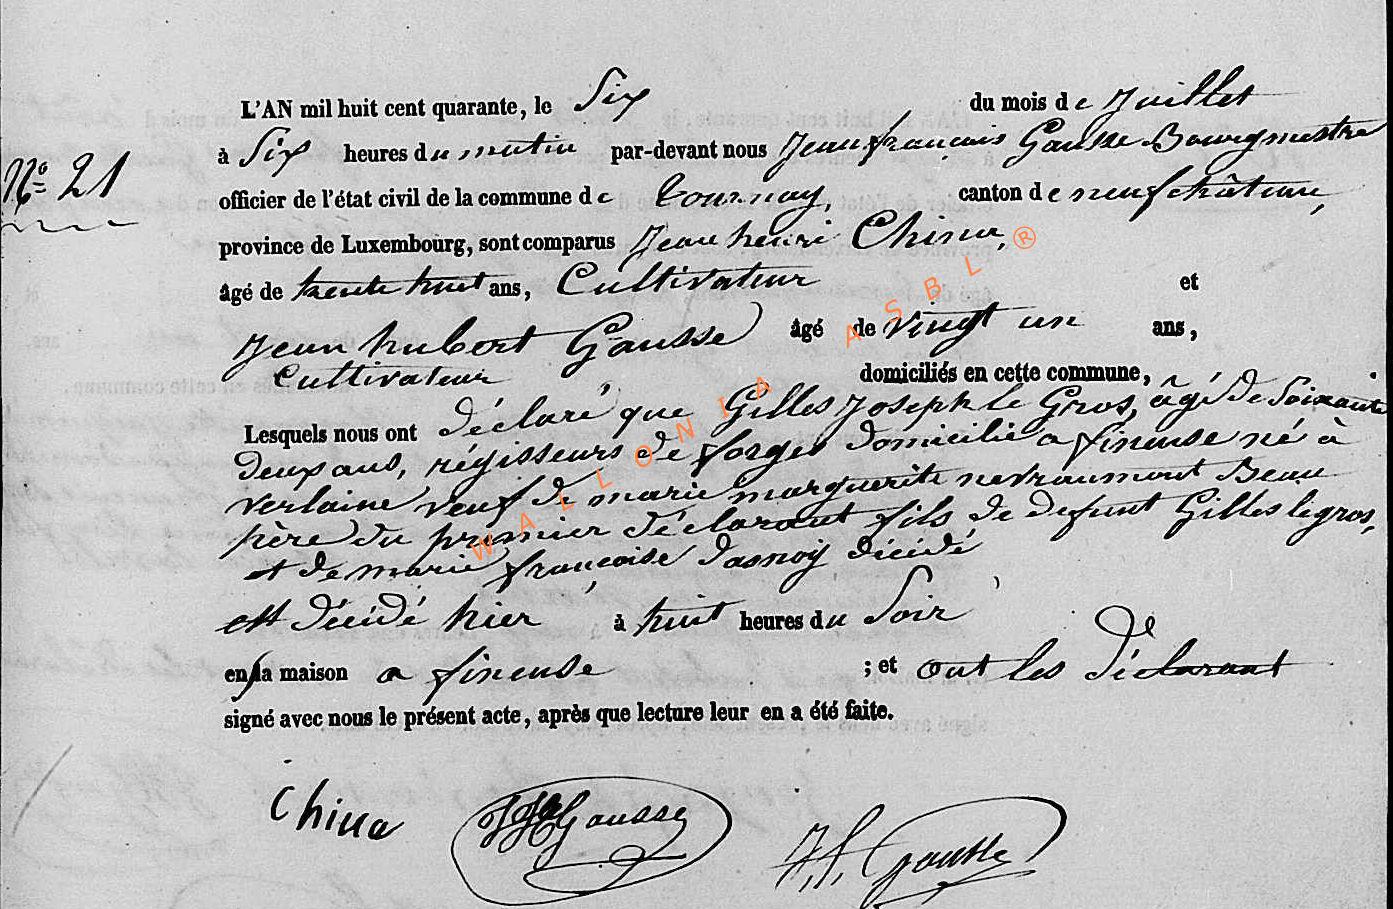 L'AN mil huit cent quarante, le Six du mois de Juillet
à Six heures du matin par-devant nous Jean françois Gausse Bourgmestre
N° 21
officier de l'état civil de la commune de tournay, canton de neufchâteau,
province de Luxembourg, sont comparus Jean henri China,
âgé de trente huit ans, Cultivateur et
Jean hubert Gausse âgé de vingt un ans,
Cultivateur domiciliés en cette commune,
Lesquels nous ont déclaré que Gilles Joseph le Gros, âgé de Soixante
deux ans, régisseurs de forges domicilié a fineuse né à
verlaine veuf de marie marguerite nevraumont Beau
père du premier déclarant fils de defunt Gilles legros,
et de marie françoise dasnoy décédé
est décédé hier à huit heures du Soir
en sa maison a fineuse ; et ont les déclarant
signé avec nous le présent acte, après que lecture leur en a été faite.
China JH Gausse J. f. Gausse
WALLONIA ASBL ®